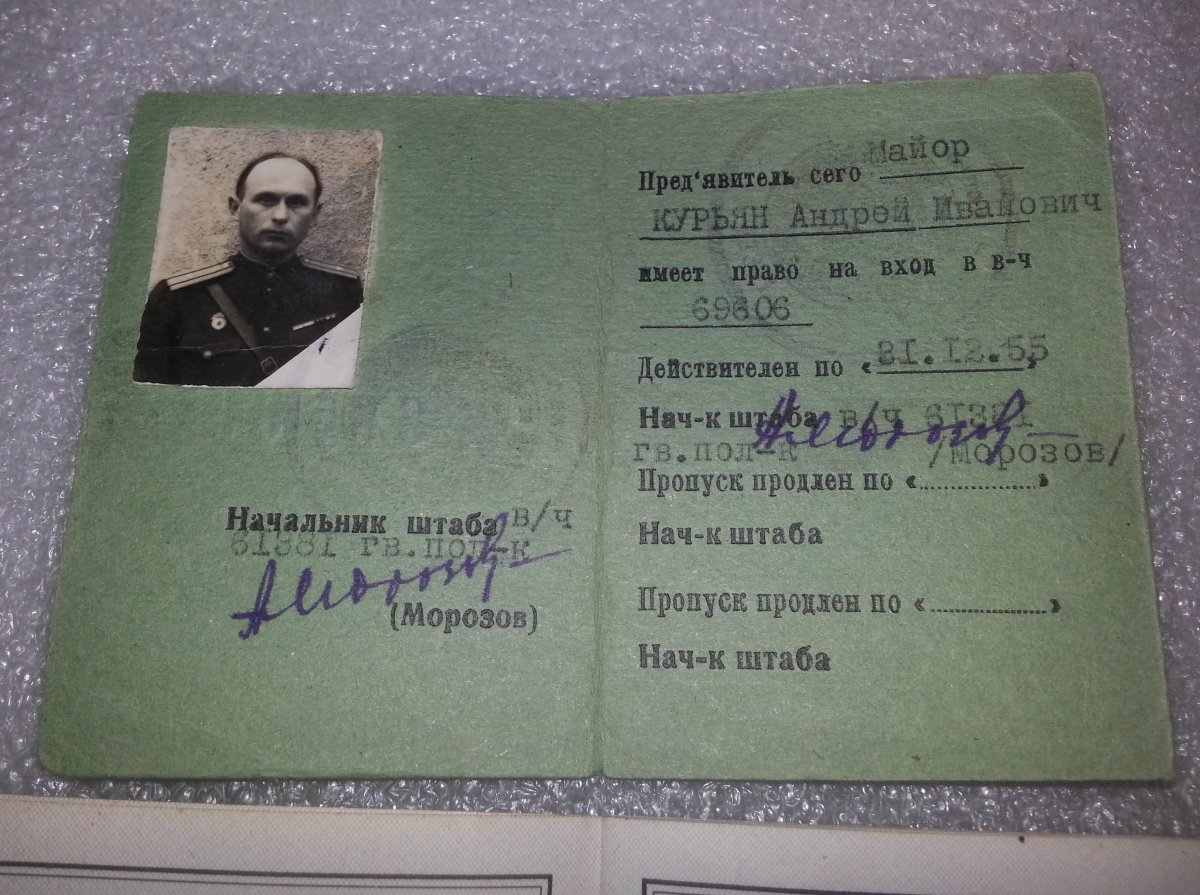 Начальник штаба в/ч
61381 гв.пол-к
(Морозов)
Майор
Пред'явитель сего
КУРЬЯН Андрей Иванович
имеет право на вход в в-ч
69806
Действителен по « 31.12.55 »
Нач-к штаба в/ч 61381
гв.пол-к /Морозов/
Пропуск продлен по «....................»
Нач-к штаба
Пропуск продлен по «....................»
Нач-к штаба